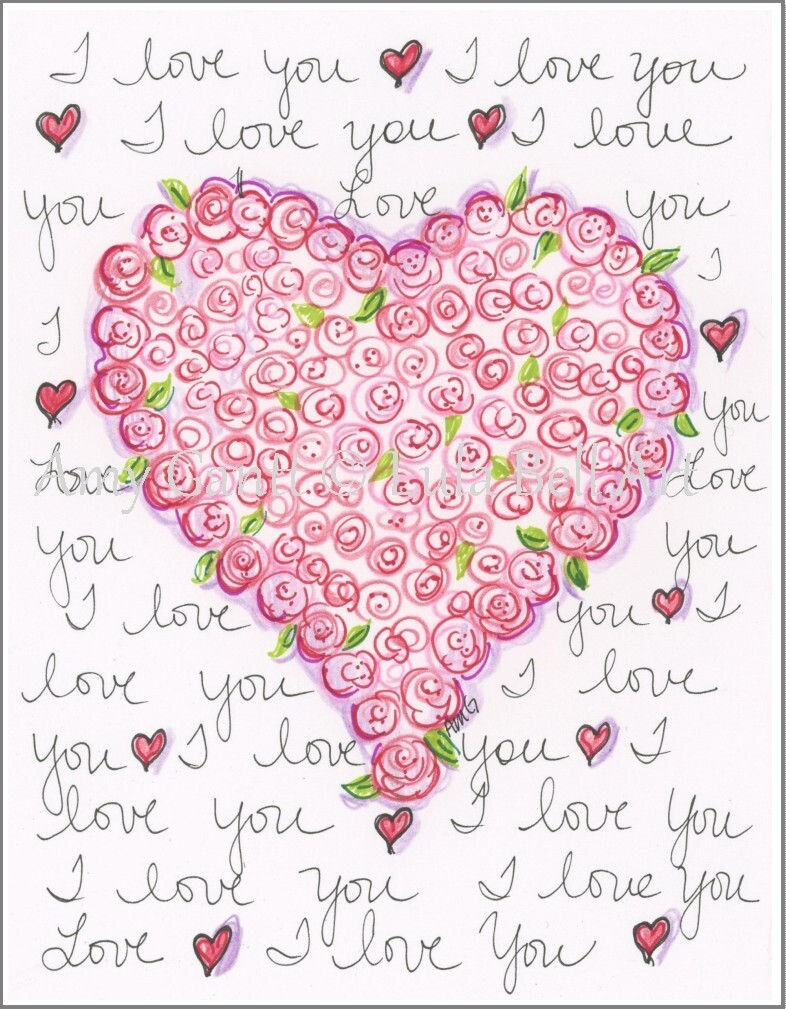 I love you I love you
I love you I love
you Love you
I
I
you
Love Love
Amy Gantt © Lula Bell Art
you you
I love you I
love you I love
AMG
you I love you I
love you I love you
I love you I love you
Love I love You